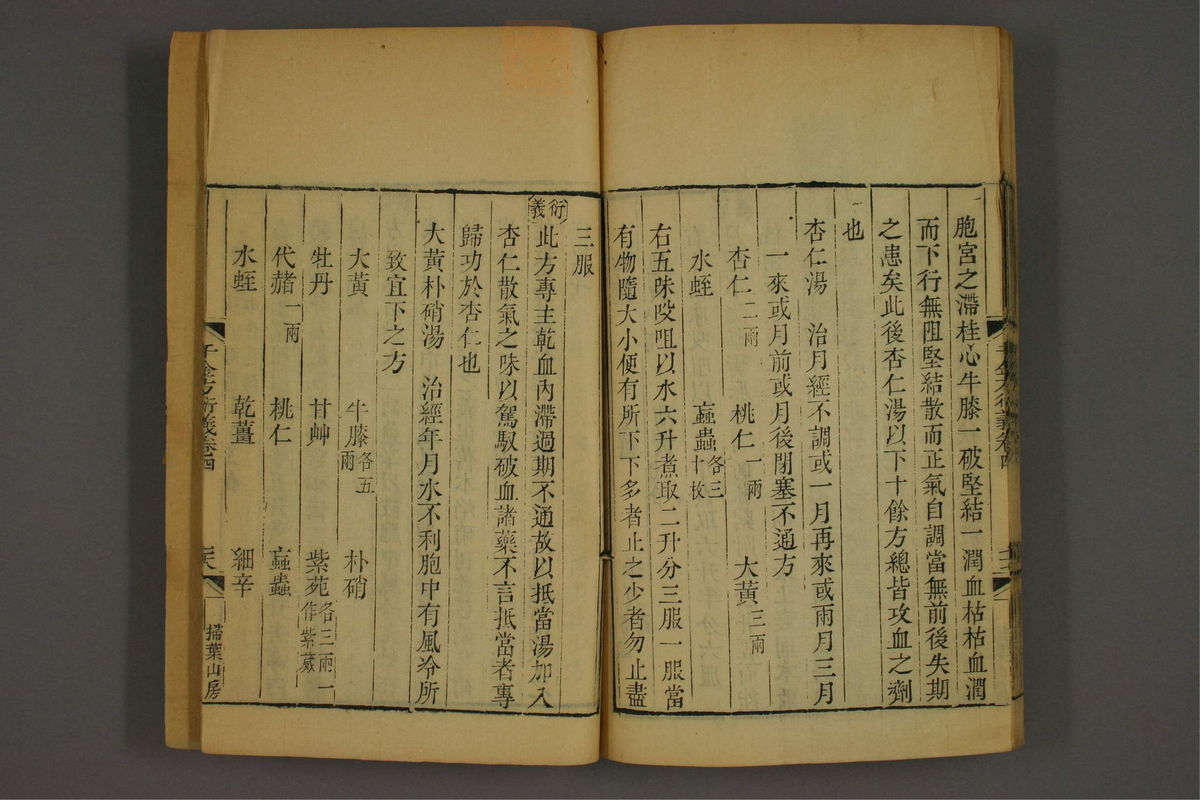 胞宮之滯桂心牛膝一破堅結一潤血枯枯血潤
而下行無阻堅結散而正氣自調當無前後失期
之患矣此後杏仁湯以下十餘方總皆攻血之劑
也
杏仁湯　治月經不調或一月再來或兩月三月
一來或月前或月後閉塞不通方
杏仁二兩　桃仁一兩　大黃三兩
水蛭　䗪蟲各三十枚
右五味㕮咀以水六升煮取二升分三服一服當
有物隨大小便有所下下多者止之少者勿止盡
三服
衍義　此方專主乾血內滯過期不通故以抵當湯加入
杏仁散氣之味以駕馭破血諸藥不言抵當者專
歸功於杏仁也
大黃朴硝湯　治經年月水不利胞中有風冷所
致宜下之方
大黃　牛膝各五兩　朴硝
牡丹　甘艸　紫苑各三兩一作紫葳
代赭一兩　桃仁　䖟蟲
水蛭　乾薑　細辛
千金方衍義卷四　掃葉山房